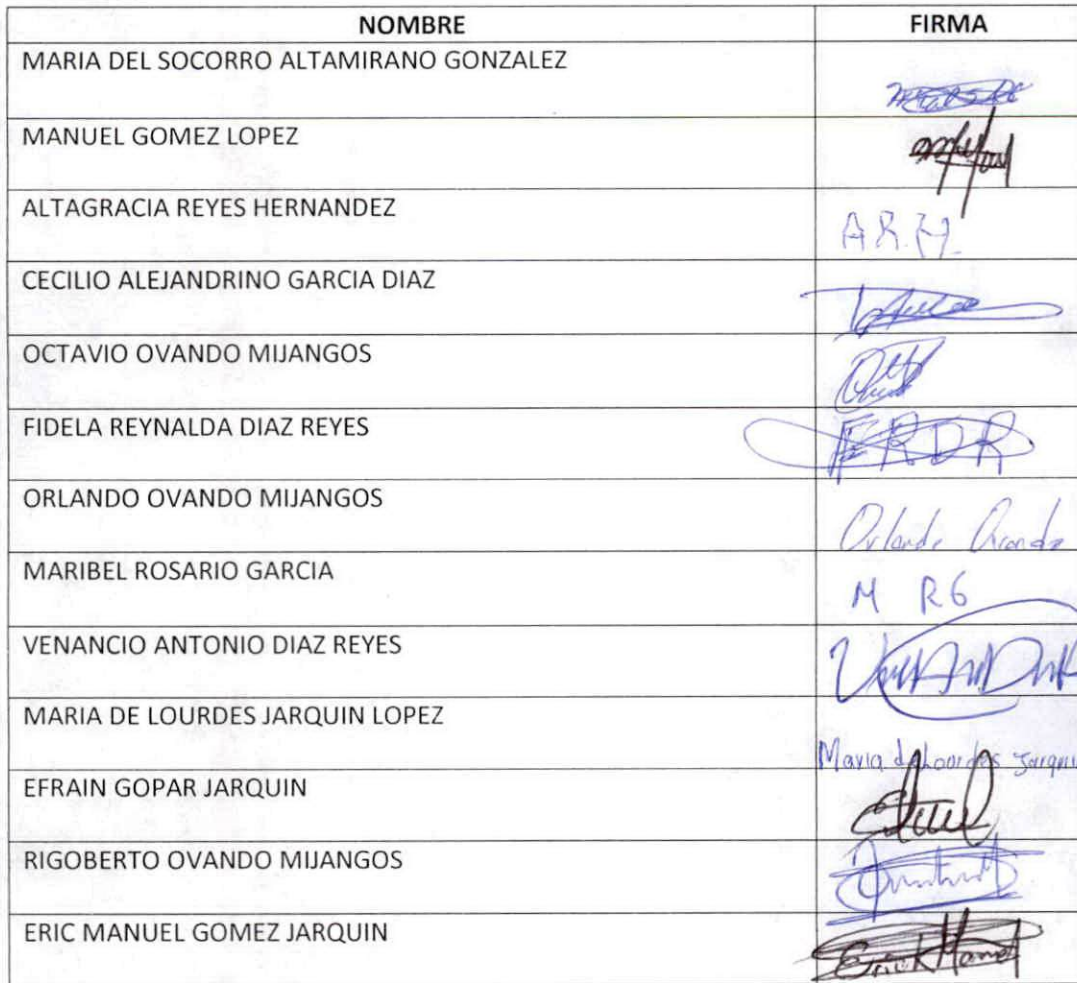 NOMBRE FIRMA
MARIA DEL SOCORRO ALTAMIRANO GONZALEZ
MANUEL GOMEZ LOPEZ
ALTAGRACIA REYES HERNANDEZ A.R.H.
CECILIO ALEJANDRINO GARCIA DIAZ
OCTAVIO OVANDO MIJANGOS
FIDELA REYNALDA DIAZ REYES FRDR
ORLANDO OVANDO MIJANGOS Orlando Ovando
MARIBEL ROSARIO GARCIA M RG
VENANCIO ANTONIO DIAZ REYES
MARIA DE LOURDES JARQUIN LOPEZ Maria de Lourdes Jarquin
EFRAIN GOPAR JARQUIN
RIGOBERTO OVANDO MIJANGOS
ERIC MANUEL GOMEZ JARQUIN Erick Manuel